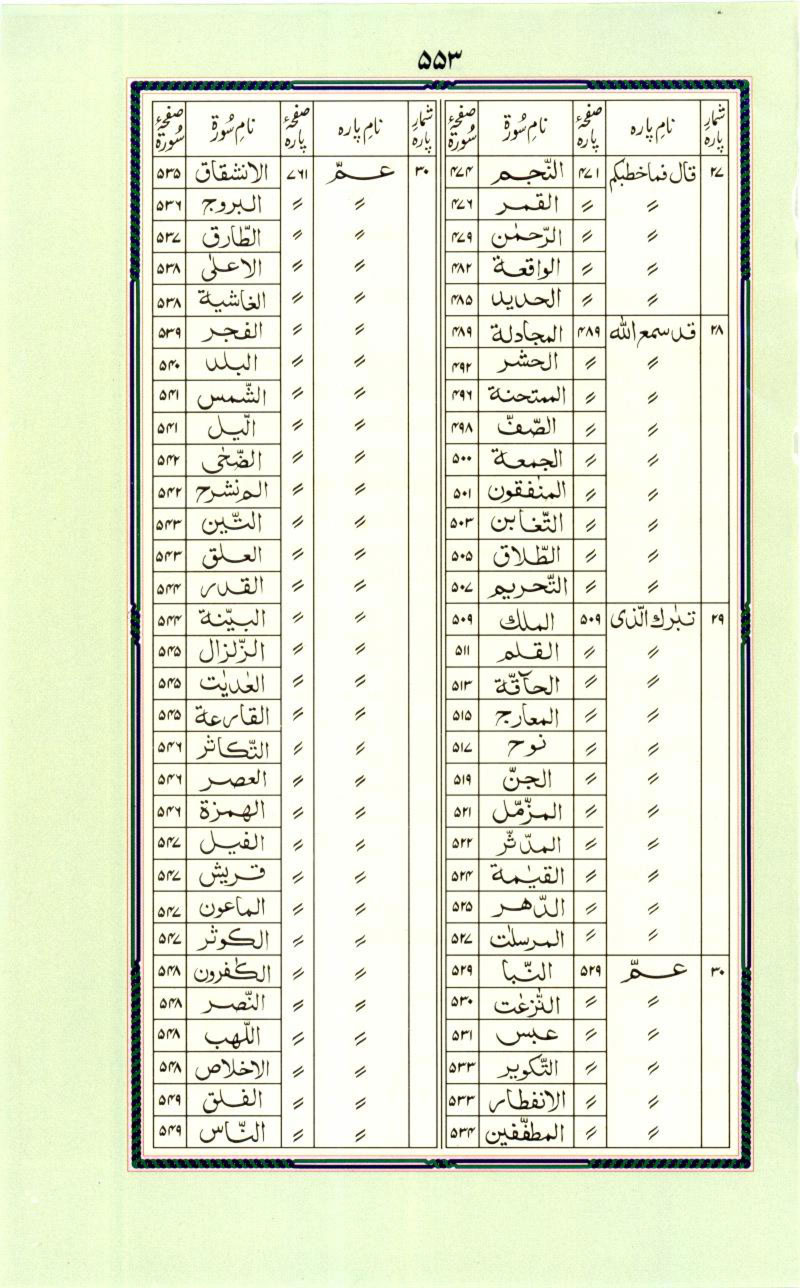 ۵۵۳
شمار پارہ نام پارہ صفحۂ پارہ نام سُورۃ صفحۂ سُورۃ
۲۷ قال فماخطبكم ۴۷۱ النّجم ۴۷۴
〃 〃 القمر ۴۷۶
〃 〃 الرّحمٰن ۴۷۹
〃 〃 الواقعة ۴۸۲
〃 〃 الحديد ۴۸۵
۲۸ قد سمع الله ۴۸۹ المجادلة ۴۸۹
〃 〃 الحشر ۴۹۲
〃 〃 الممتحنة ۴۹۶
〃 〃 الصّفّ ۴۹۸
〃 〃 الجمعة ۵۰۰
〃 〃 المنٰفقون ۵۰۱
〃 〃 التّغابن ۵۰۳
〃 〃 الطّلاق ۵۰۵
〃 〃 التّحريم ۵۰۷
۲۹ تبٰرك الّذى ۵۰۹ الملك ۵۰۹
〃 〃 القلم ۵۱۱
〃 〃 الحآقّة ۵۱۳
〃 〃 المعارج ۵۱۵
〃 〃 نوح ۵۱۷
〃 〃 الجنّ ۵۱۹
〃 〃 المزّمّل ۵۲۱
〃 〃 المدّثّر ۵۲۲
〃 〃 القيٰمة ۵۲۴
〃 〃 الدّهر ۵۲۵
〃 〃 المرسلٰت ۵۲۷
۳۰ عمّ ۵۲۹ النّبا ۵۲۹
〃 〃 النّٰزعٰت ۵۳۰
〃 〃 عبس ۵۳۱
〃 〃 التّكوير ۵۳۳
〃 〃 الانفطار ۵۳۳
〃 〃 المطفّفين ۵۳۴
شمار پارہ نام پارہ صفحۂ پارہ نام سُورۃ صفحۂ سُورۃ
۳۰ عمّ ۷۶۱ الانشقاق ۵۳۵
〃 〃 البروج ۵۳۶
〃 〃 الطّارق ۵۳۷
〃 〃 الاعلٰى ۵۳۸
〃 〃 الغاشية ۵۳۸
〃 〃 الفجر ۵۳۹
〃 〃 البلد ۵۴۰
〃 〃 الشّمس ۵۴۱
〃 〃 الّيل ۵۴۱
〃 〃 الضّحٰى ۵۴۲
〃 〃 الم نشرح ۵۴۲
〃 〃 التّين ۵۴۳
〃 〃 العلق ۵۴۳
〃 〃 القدر ۵۴۴
〃 〃 البيّنة ۵۴۴
〃 〃 الزّلزال ۵۴۵
〃 〃 العٰديٰت ۵۴۵
〃 〃 القارعة ۵۴۵
〃 〃 التّكاثر ۵۴۶
〃 〃 العصر ۵۴۶
〃 〃 الهمزة ۵۴۶
〃 〃 الفيل ۵۴۷
〃 〃 قريش ۵۴۷
〃 〃 الماعون ۵۴۷
〃 〃 الكوثر ۵۴۷
〃 〃 الكٰفرون ۵۴۸
〃 〃 النّصر ۵۴۸
〃 〃 اللّهب ۵۴۸
〃 〃 الاخلاص ۵۴۸
〃 〃 الفلق ۵۴۹
〃 〃 النّاس ۵۴۹